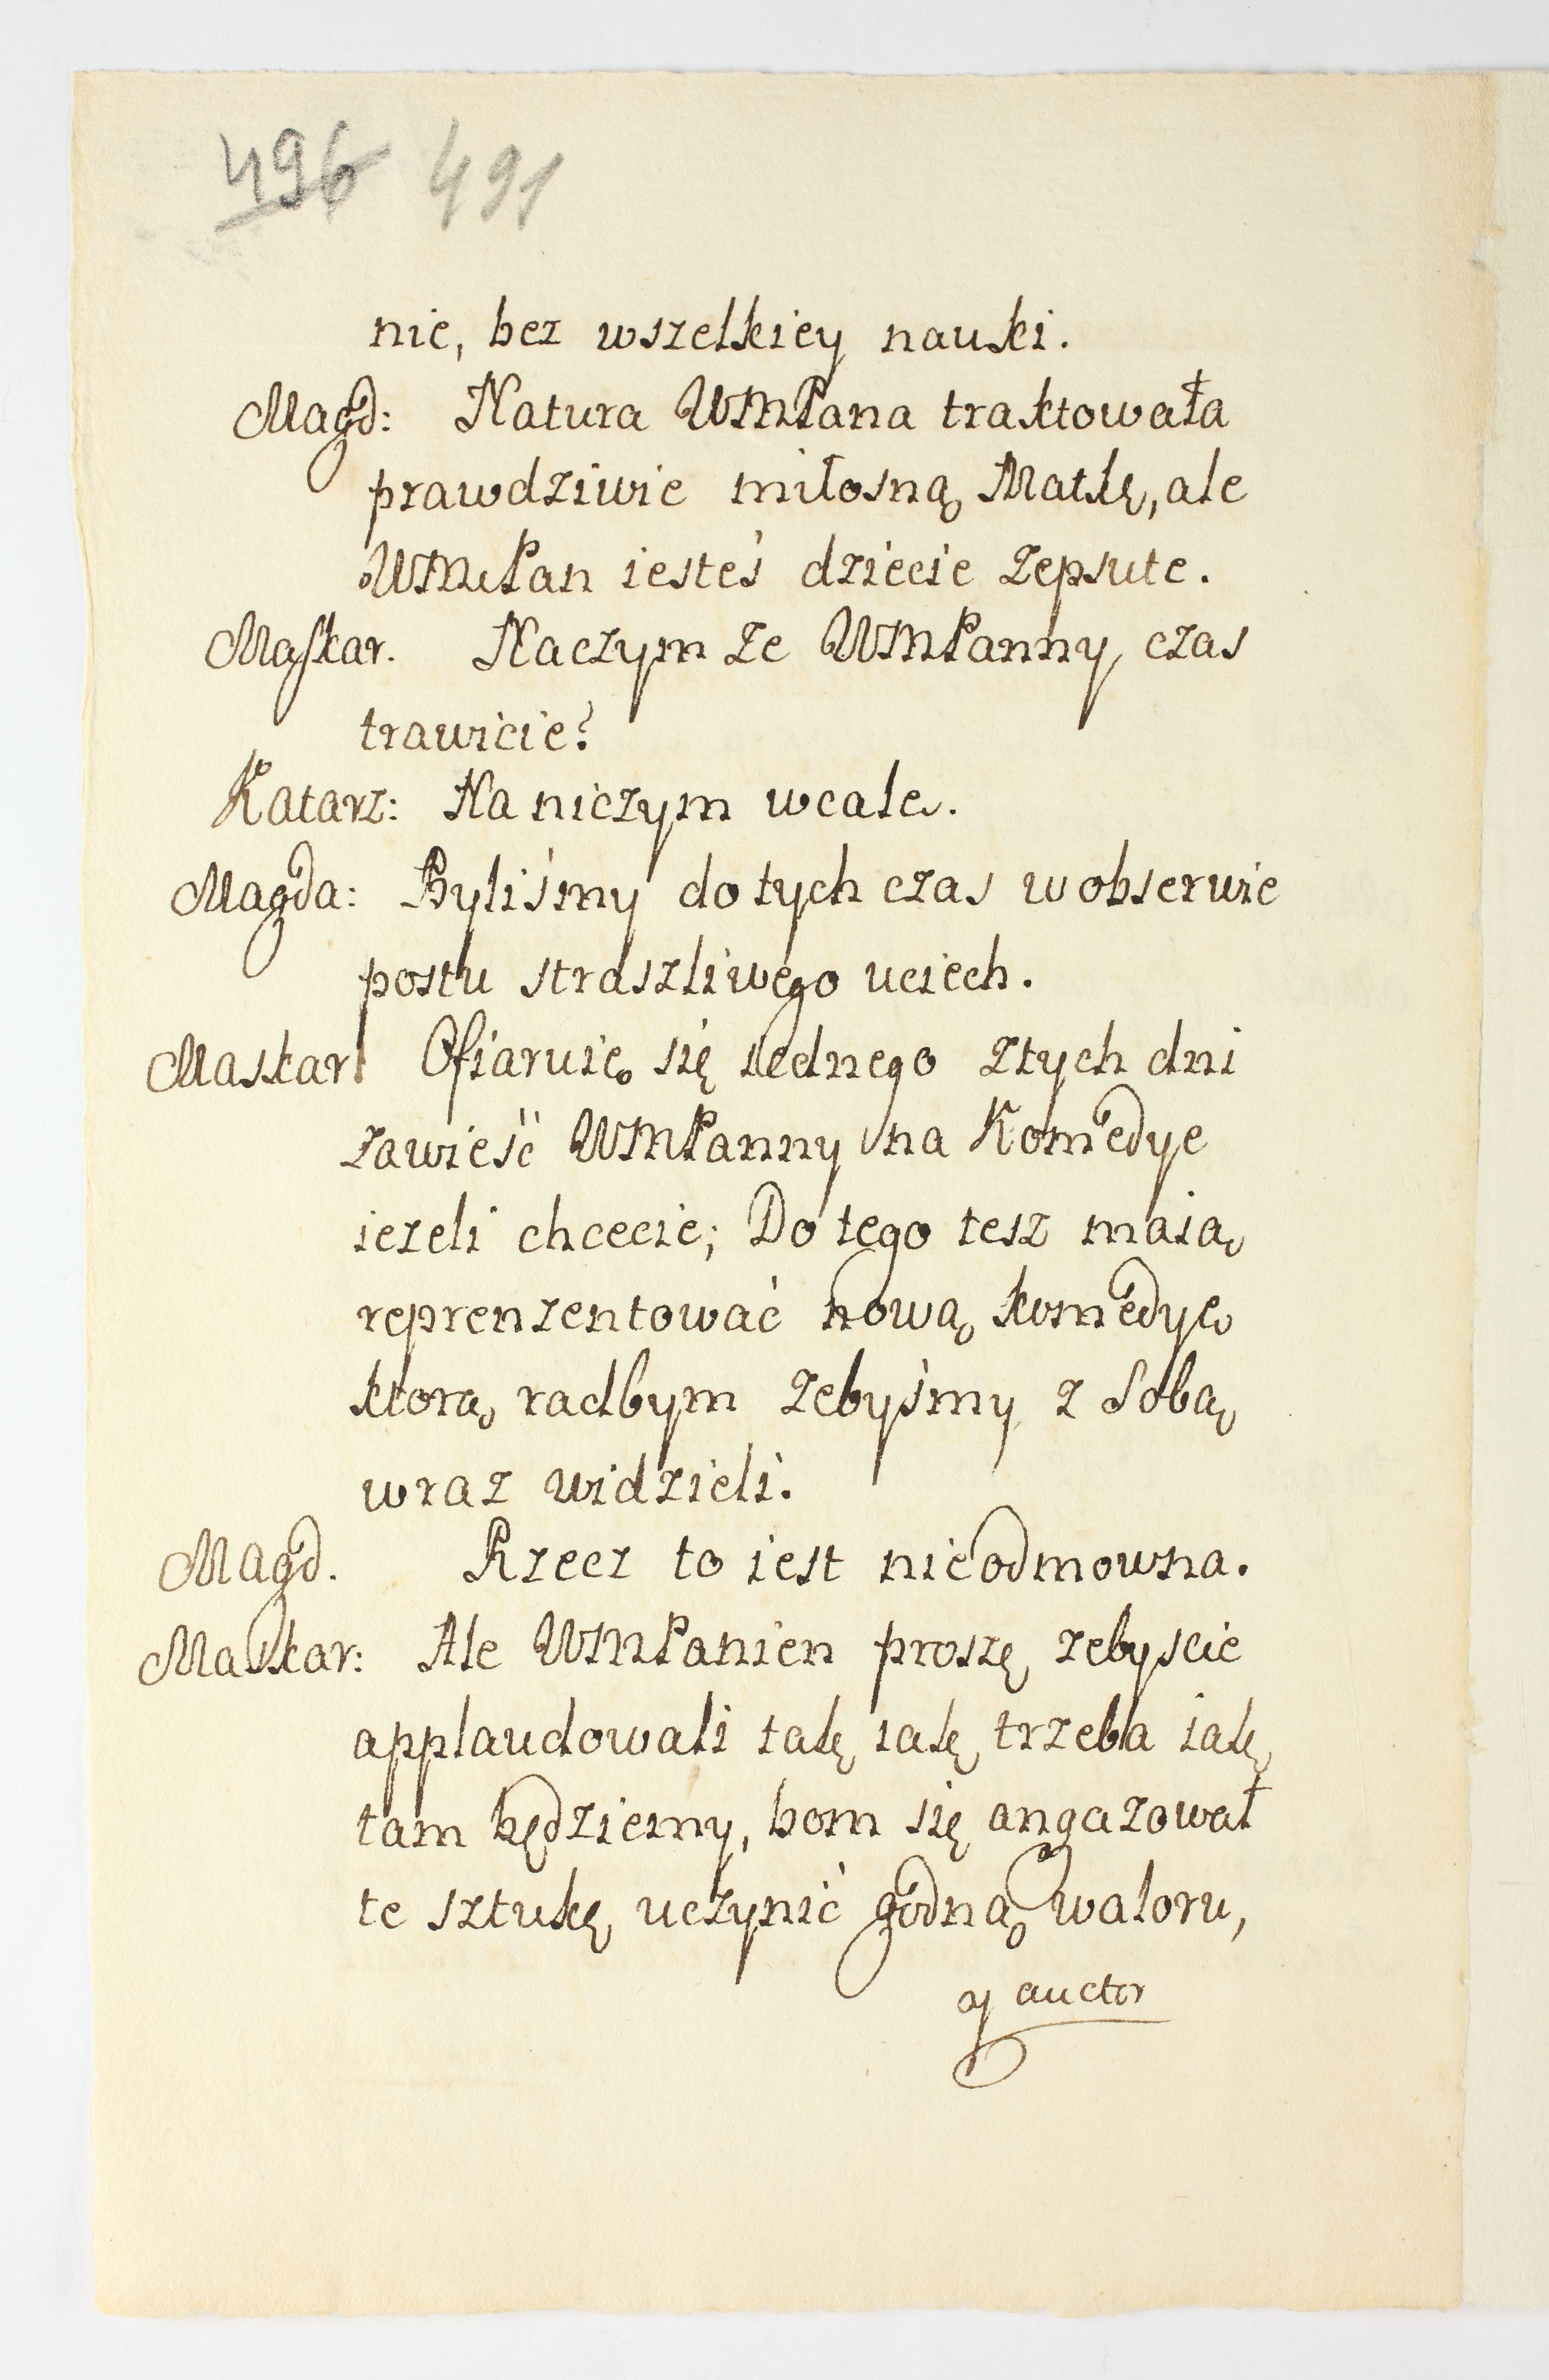 496 491
nie, bez wszelkiey nauki.
Magd: Natura WMPana traktowała
prawdziwie miłosną Matkę, ale
WMPan iesteś dziecie zepsute.
Maskar. Naczym ze WMPanny czas
trawicie?
Katarz: Na niczym wcale.
Magda: Byliśmy do tych czas w obserwie
postu straszliwego uciech.
Maskar: Ofiaruię się iednego ztych dni
zawieść WMPanny na Komedye
ieżeli chcecie; Do tego tesz maią
reprenzentować nową komedyę
ktorą radbym zebyśmy z sobą
wraz widzieli.
Magd. Rzecz to iest nieodmowna.
Maskar: Ale WMPanien proszę zebyscie
applaudowali iakę iakę trzeba iakę
tam będziemy, bom się angazował
te sztukę uczynić godną waloru,
y auctor